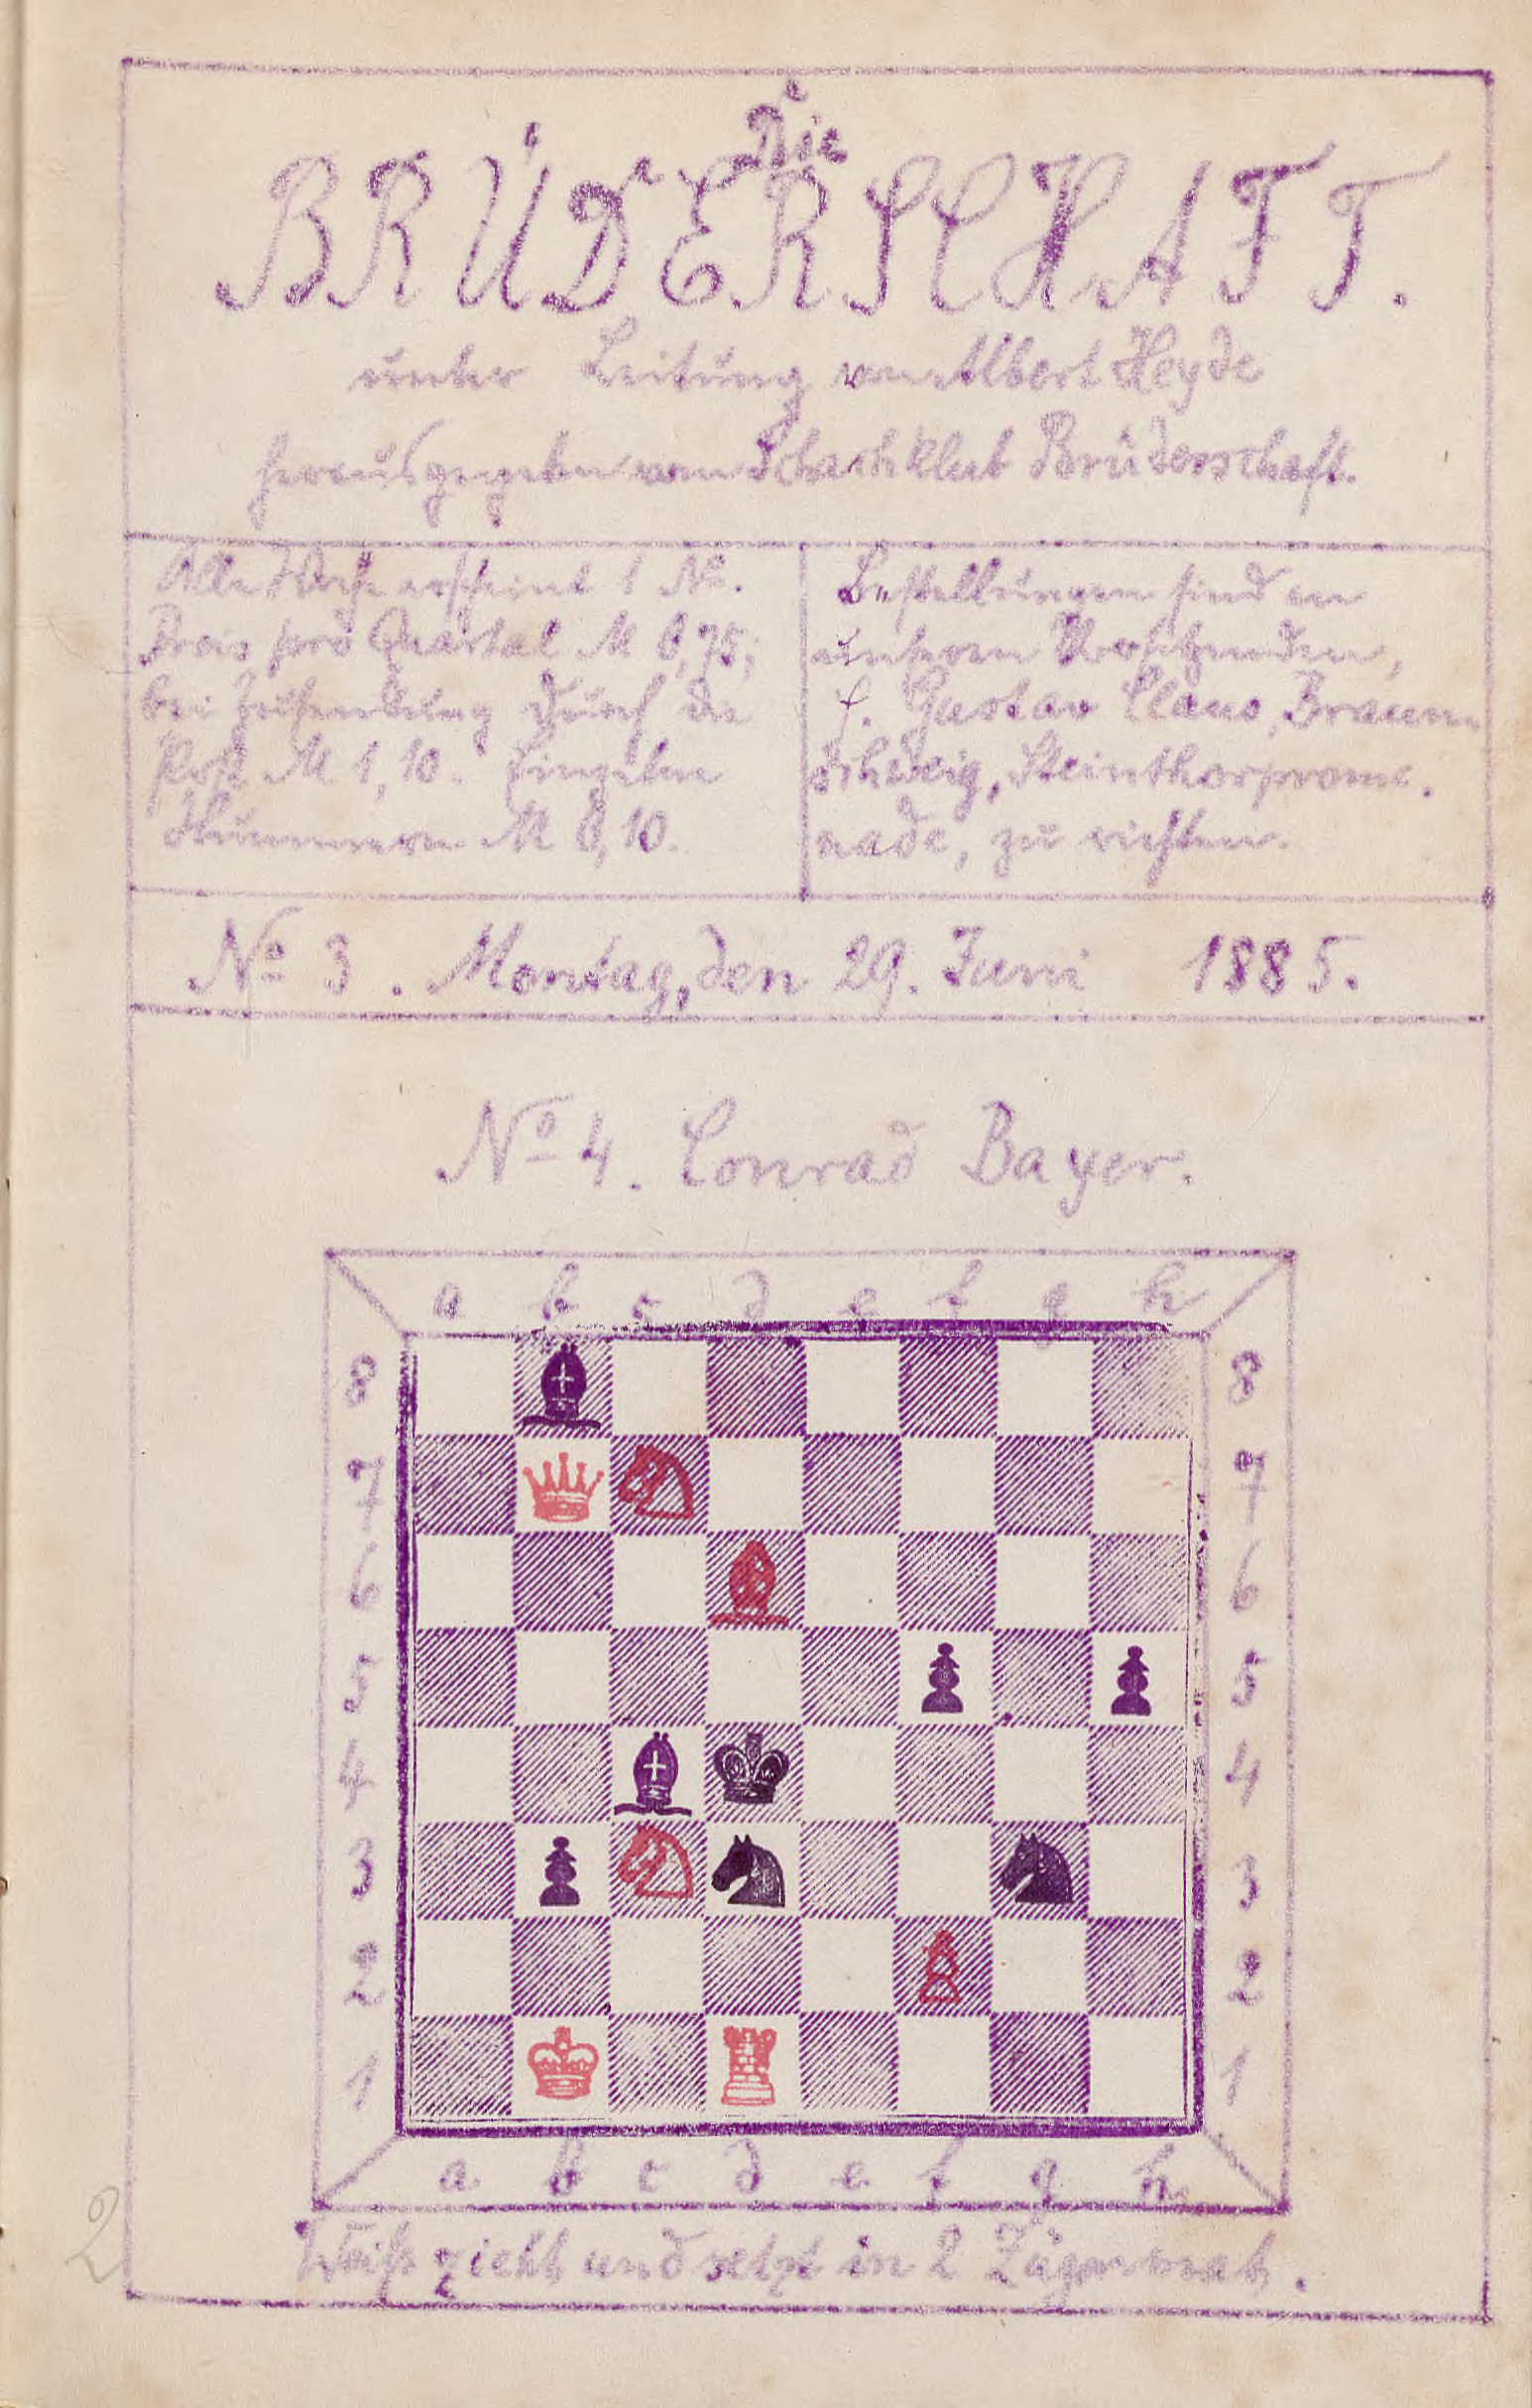 Die
BRÜDERSCHAFT.
unter Leitung von Albert Heyde
herausgegeben vom Schachklub Brüderschaft.
Alle Woche erscheint 1 No.
Preis pro Quartal M 0,75;
bei Zusendung durch die
Post M 1,10. Einzelne
Nummern M 0,10.
Bestellungen sind an
unseren Vorsitzenden,
H. Gustav Claus, Braun-
schweig, Steinthorprome-
nade, zu richten.
No 3. Montag, den 29. Juni 1885.
No 4. Conrad Bayer.
a b c d e f g h
8 8
7 7
6 6
5 5
4 4
3 3
2 2
1 1
a b c d e f g h
Weiß zieht und setzt in 2 Zügen mat.
2